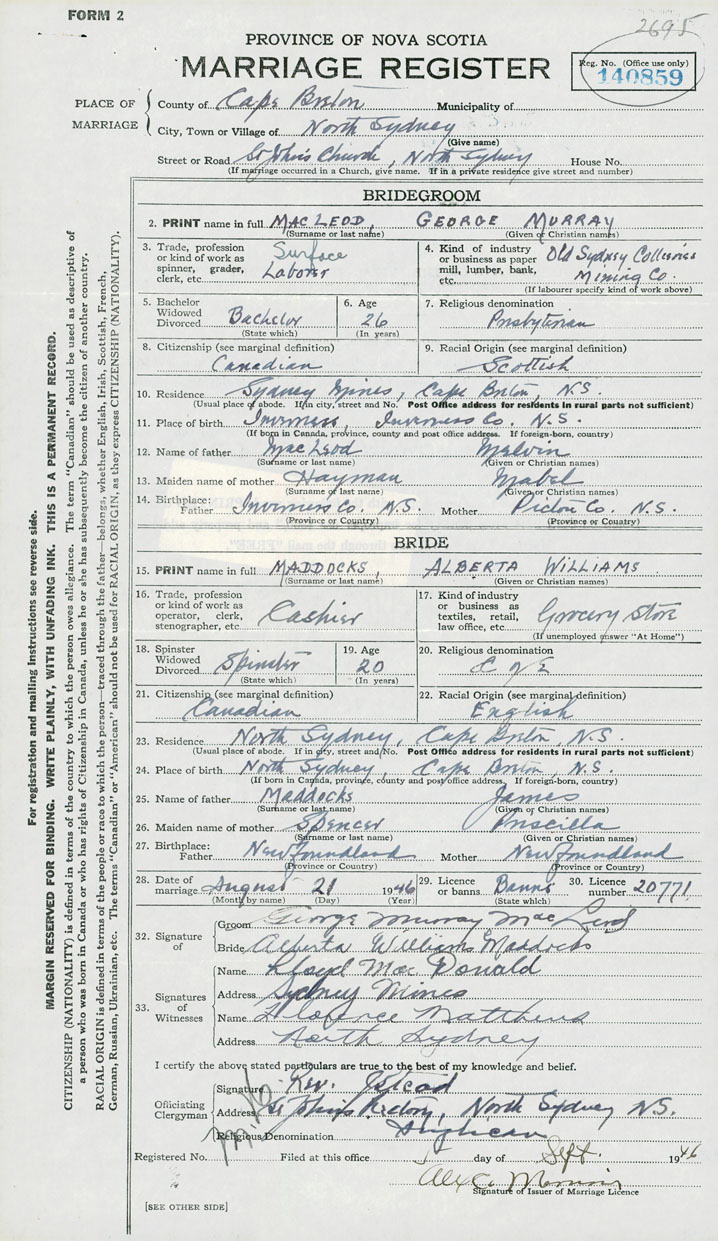 FORM 2
2695
PROVINCE OF NOVA SCOTIA
MARRIAGE REGISTER
Reg. No. (Office use only)
140859
PLACE OF MARRIAGE
County of Cape Breton Municipality of
City, Town or Village of North Sydney
(Give name)
Street or Road St John's Church, North Sydney House No.
(If marriage occurred in a Church, give name. If in a private residence give street and number)
BRIDEGROOM
2. PRINT name in full MACLEOD, GEORGE MURRAY
(Surname or last name) (Given or Christian names)
3. Trade, profession or kind of work as spinner, grader, clerk, etc. Surface Laborer
4. Kind of industry or business as paper mill, lumber, bank, etc. Old Sydney Collieries Mining Co.
(If labourer specify kind of work above)
5. Bachelor Widowed Divorced Bachelor
(State which)
6. Age 26
(In years)
7. Religious denomination Presbyterian
8. Citizenship (see marginal definition) Canadian
9. Racial Origin (see marginal definition) Scottish
10. Residence Sydney Mines, Cape Breton, N.S.
(Usual place of abode. If in city, street and No. Post Office address for residents in rural parts not sufficient)
11. Place of birth Inverness, Inverness Co. N.S.
(If born in Canada, province, county and post office address. If foreign-born, country)
12. Name of father MacLeod Melvin
(Surname or last name) (Given or Christian names)
13. Maiden name of mother Hayman Mabel
(Surname or last name) (Given or Christian names)
14. Birthplace: Father Inverness Co. N.S. Mother Pictou Co. N.S.
(Province or Country) (Province or Country)
BRIDE
15. PRINT name in full MADDOCKS, ALBERTA WILLIAMS
(Surname or last name) (Given or Christian names)
16. Trade, profession or kind of work as operator, clerk, stenographer, etc. Cashier
17. Kind of industry or business as textiles, retail, law office, etc. Grocery Store
(If unemployed answer "At Home")
18. Spinster Widowed Divorced Spinster
(State which)
19. Age 20
(In years)
20. Religious denomination C of E
21. Citizenship (see marginal definition) Canadian
22. Racial Origin (see marginal definition) English
23. Residence North Sydney, Cape Breton, N.S.
(Usual place of abode. If in city, street and No. Post Office address for residents in rural parts not sufficient)
24. Place of birth North Sydney, Cape Breton, N.S.
(If born in Canada, province, county and post office address. If foreign-born, country)
25. Name of father Maddocks James
(Surname or last name) (Given or Christian names)
26. Maiden name of mother Spencer Priscilla
(Surname or last name) (Given or Christian names)
27. Birthplace: Father Newfoundland Mother Newfoundland
(Province or Country) (Province or Country)
28. Date of marriage August 21 1946
(Month by name) (Day) (Year)
29. Licence or banns Banns
(State which)
30. Licence number 20771
32. Signature of
Groom George Murray MacLeod
Bride Alberta Williams Maddocks
33. Signatures of Witnesses
Name Lloyd MacDonald
Address Sydney Mines
Name Florence Matthews
Address North Sydney
I certify the above stated particulars are true to the best of my knowledge and belief.
Officiating Clergyman
Signature Rev.
Address St John's Rectory, North Sydney N.S.
Religious Denomination Anglican
Registered No. Filed at this office 5 day of Sept. 1946
Signature of Issuer of Marriage Licence
[SEE OTHER SIDE]
For registration and mailing instructions see reverse side.
MARGIN RESERVED FOR BINDING. WRITE PLAINLY, WITH UNFADING INK. THIS IS A PERMANENT RECORD.
CITIZENSHIP (NATIONALITY) is defined in terms of the country to which the person owes allegiance. The term "Canadian" should be used as descriptive of
a person who was born in Canada or who has rights of Citizenship in Canada, unless he or she has subsequently become the citizen of another country.
RACIAL ORIGIN is defined in terms of the people or race to which the person—traced through the father—belongs, whether English, Irish, Scottish, French,
German, Russian, Ukrainian, etc. The terms "Canadian" or "American" should not be used for RACIAL ORIGIN, as they express CITIZENSHIP (NATIONALITY).